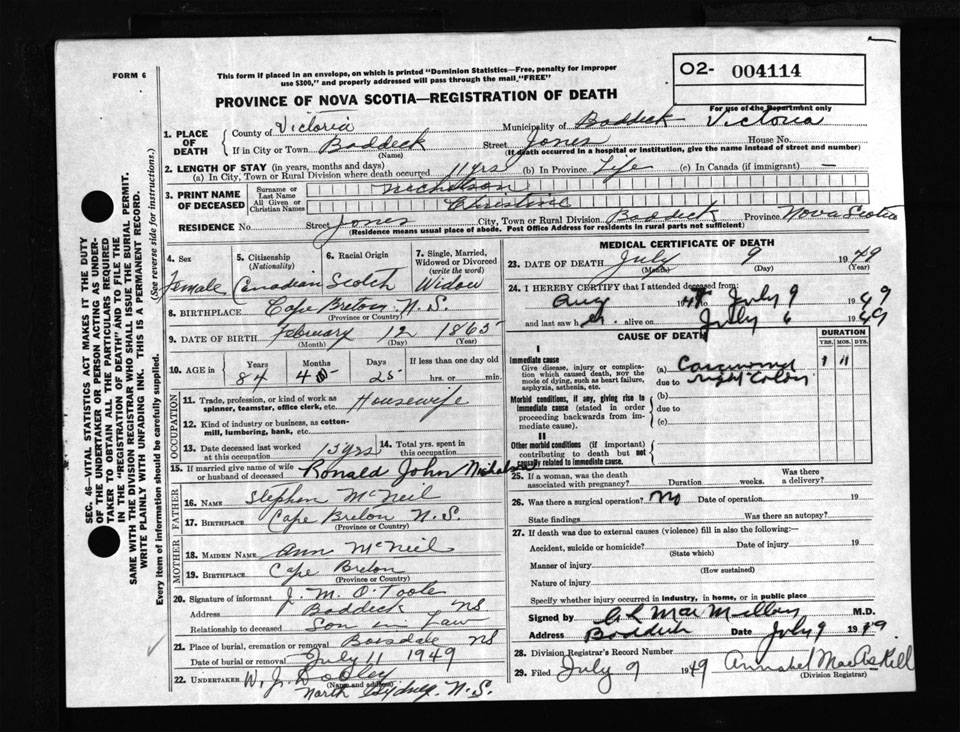 FORM 6
This form if placed in an envelope, on which is printed "Dominion Statistics—Free, penalty for improper
use $300," and properly addressed will pass through the mail "FREE"
O2- 004114
For use of the Department only
PROVINCE OF NOVA SCOTIA—REGISTRATION OF DEATH
1. PLACE OF DEATH County of Victoria Municipality of Baddeck Victoria
If in City or Town Baddeck (Name) Street Jones House No.
(If death occurred in a hospital or institution, give the name instead of street and number)
2. LENGTH OF STAY (in years, months and days)
(a) In City, Town or Rural Division where death occurred 11 yrs (b) In Province Life (c) In Canada (if immigrant) —
3. PRINT NAME OF DECEASED Surname or Last Name Nicholson
All Given or Christian Names Christine
RESIDENCE No. Street Jones City, Town or Rural Division Baddeck Province Nova Scotia
(Residence means usual place of abode. Post Office Address for residents in rural parts not sufficient)
4. Sex Female
5. Citizenship (Nationality) Canadian
6. Racial Origin Scotch
7. Single, Married, Widowed or Divorced (write the word) Widow
8. BIRTHPLACE Cape Breton N.S. (Province or Country)
9. DATE OF BIRTH February (Month) 12 (Day) 1865 (Year)
10. AGE in Years 84 Months 4 Days 25 If less than one day old hrs. or min.
OCCUPATION
11. Trade, profession, or kind of work as spinner, teamster, office clerk, etc. Housewife
12. Kind of industry or business, as cotton-mill, lumbering, bank, etc.
13. Date deceased last worked at this occupation 13 yrs
14. Total yrs. spent in this occupation
15. If married give name of wife or husband of deceased Ronald John Nicholson
FATHER
16. NAME Stephen McNeil
17. BIRTHPLACE Cape Breton N.S. (Province or Country)
MOTHER
18. MAIDEN NAME Ann McNeil
19. BIRTHPLACE Cape Breton (Province or Country)
20. Signature of informant J. M. O'Toole
Address Baddeck NS
Relationship to deceased Son in Law
21. Place of burial, cremation or removal Boisdale NS
Date of burial or removal July 11 1949
22. UNDERTAKER W. J. Dooley
(Name and address) North Sydney N.S.
MEDICAL CERTIFICATE OF DEATH
23. DATE OF DEATH July (Month) 9 (Day) 1949 (Year)
24. I HEREBY CERTIFY that I attended deceased from:
Aug to July 9 1949
and last saw her alive on July 6 1949
CAUSE OF DEATH
DURATION
YRS. MOS. DYS.
I
Immediate cause
Give disease, injury or complication which caused death, not the mode of dying, such as heart failure, asphyxia, asthenia, etc.
(a) Carcinoma 1 11
due to right Colon
Morbid conditions, if any, giving rise to immediate cause (stated in order proceeding backwards from immediate cause).
(b)
due to
(c)
II
Other morbid conditions (if important) contributing to death but not causally related to immediate cause.
25. If a woman, was the death associated with pregnancy? Duration weeks. Was there a delivery?
26. Was there a surgical operation? No Date of operation 19
State findings Was there an autopsy?
27. If death was due to external causes (violence) fill in also the following:—
Accident, suicide or homicide? (State which) Date of injury 19
Manner of injury (How sustained)
Nature of injury
Specify whether injury occurred in industry, in home, or in public place
Signed by MacMillan M.D.
Address Baddeck Date July 9 1949
28. Division Registrar's Record Number
29. Filed July 9 1949 Annabel MacAskill
(Division Registrar)
SEC. 46—VITAL STATISTICS ACT MAKES IT THE DUTY
OF THE UNDERTAKER OR PERSON ACTING AS UNDER-
TAKER TO OBTAIN ALL THE PARTICULARS REQUIRED
IN THE "REGISTRATION OF DEATH" AND TO FILE THE
SAME WITH THE DIVISION REGISTRAR WHO SHALL ISSUE THE BURIAL PERMIT.
WRITE PLAINLY WITH UNFADING INK. THIS IS A PERMANENT RECORD.
Every item of information should be carefully supplied. (See reverse side for instructions.)